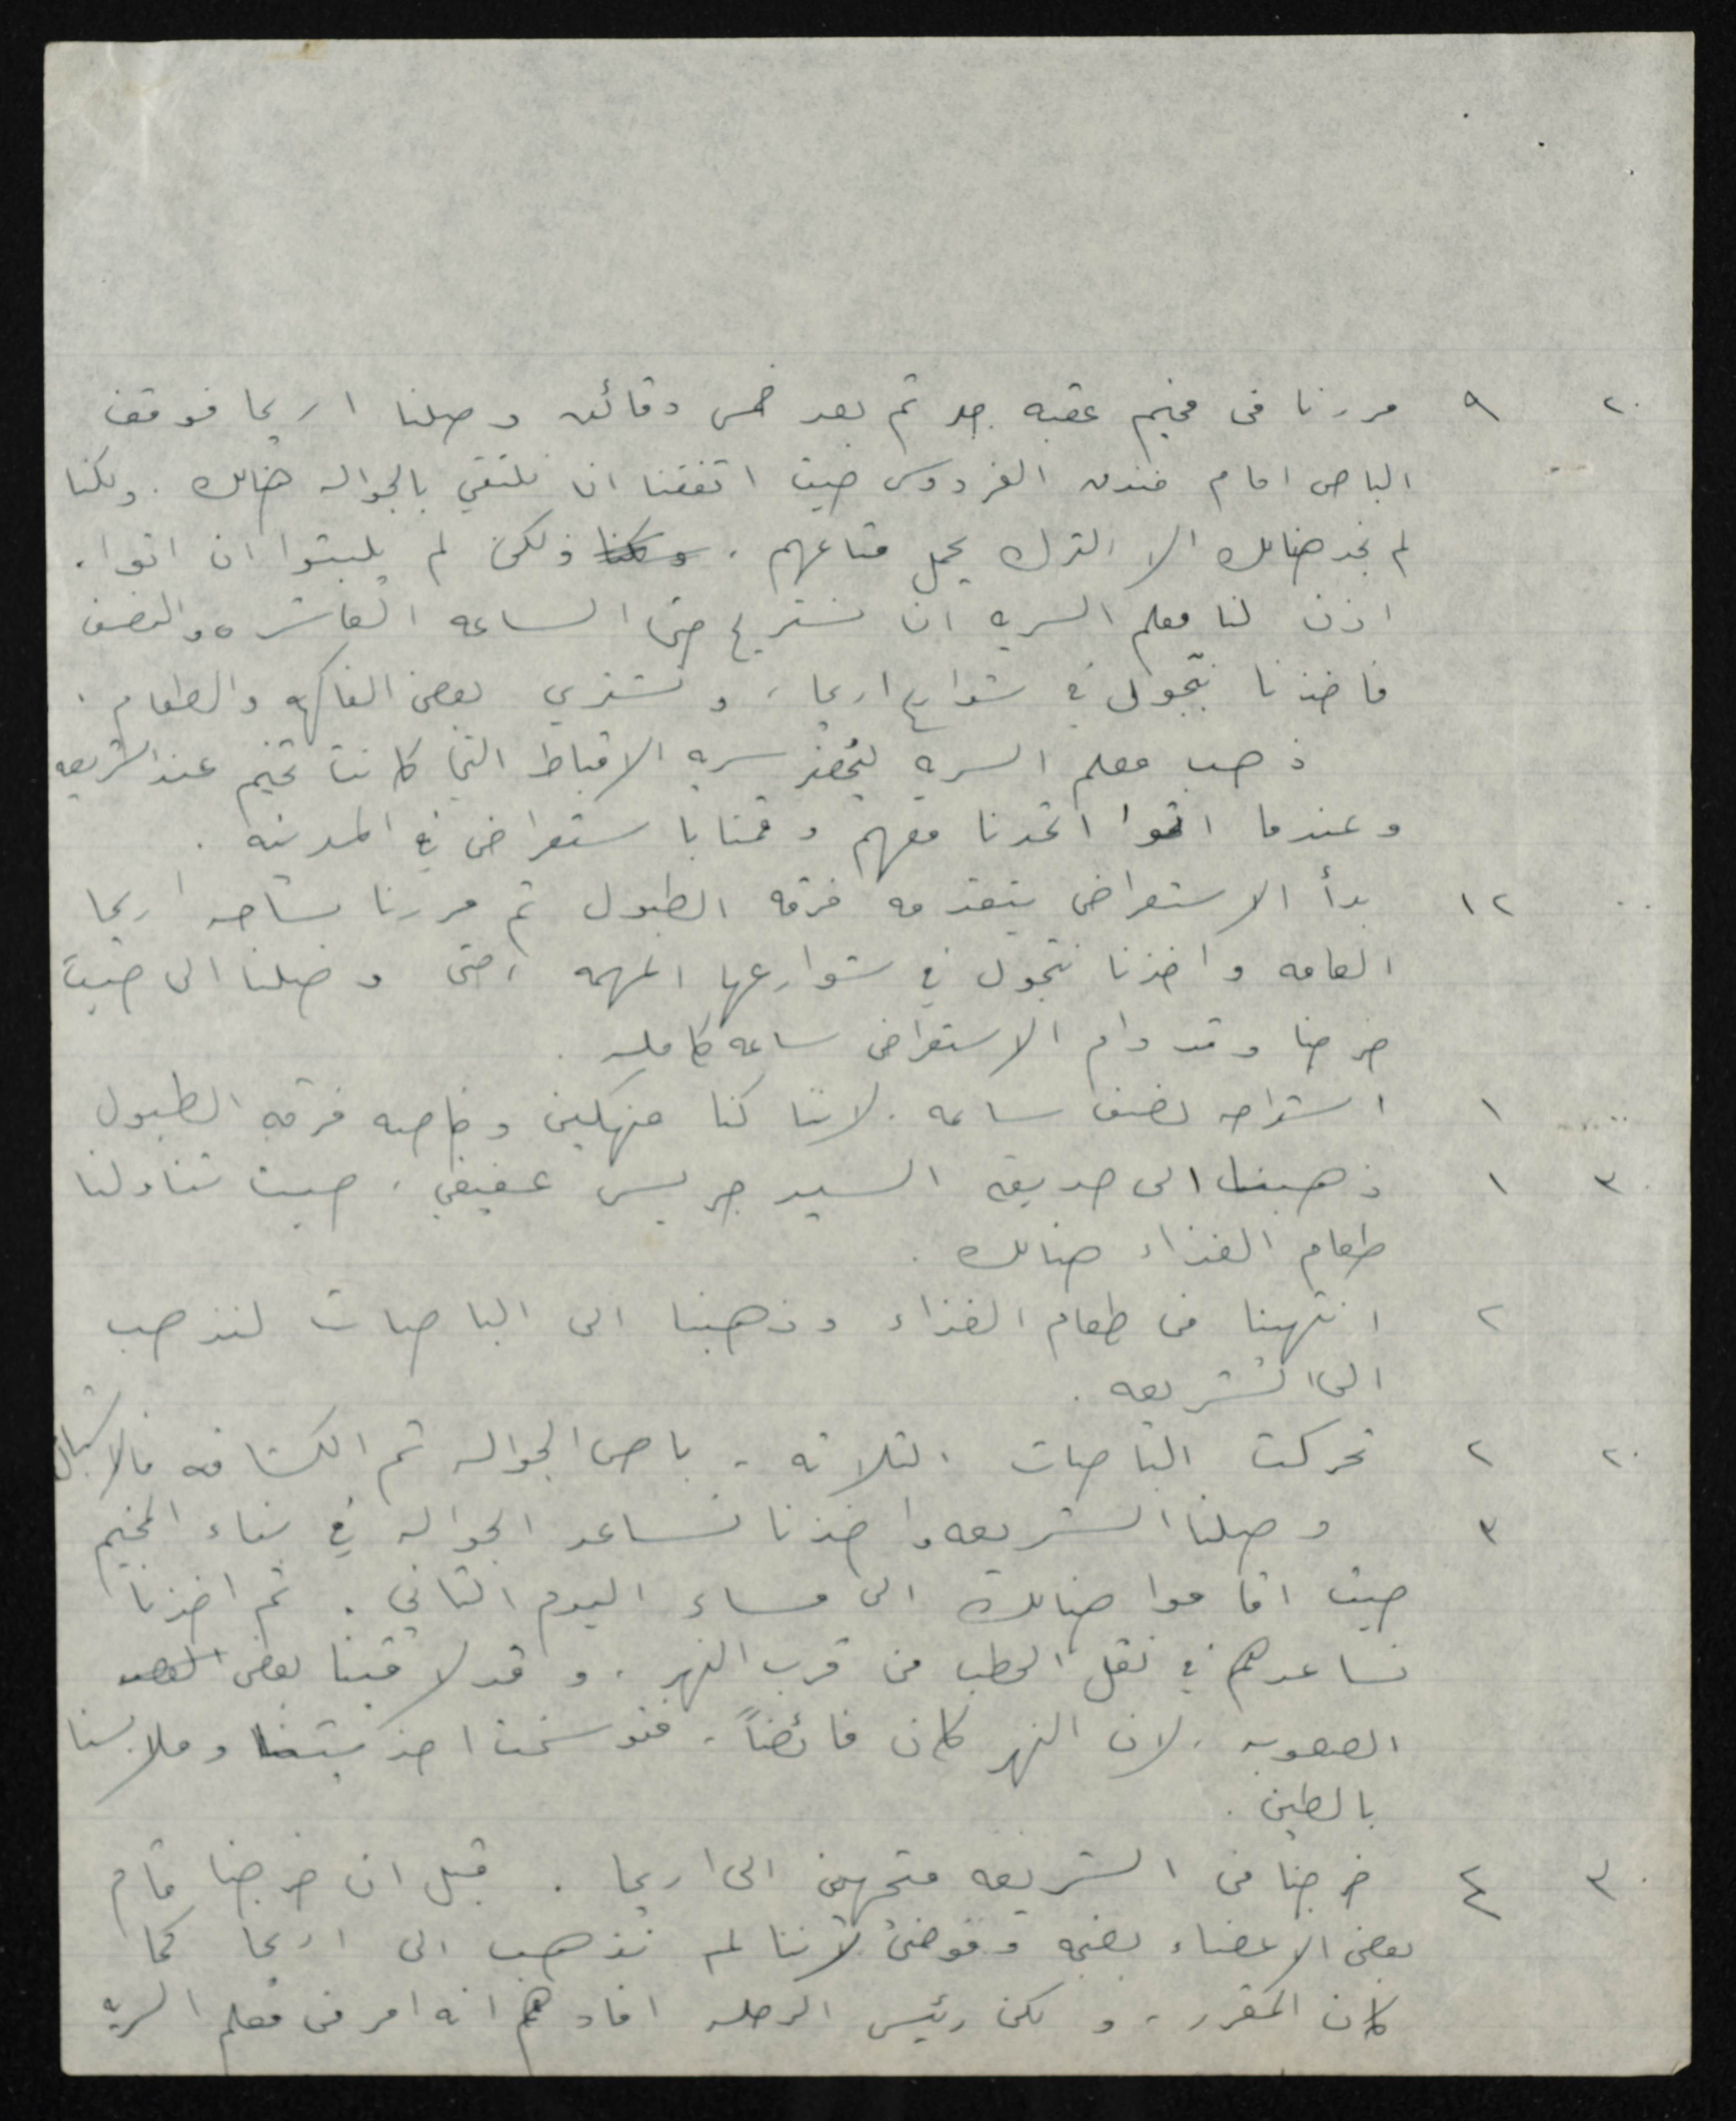 ٢٠ ٩ مررنا في مخيم عقبه جبر ثم بعد خمس دقائق وصلنا اريحا فوقف
الباص امام فندق الفردوس حيث اتفقنا ان نلتقي بالجواله هنالك . ولكنا
لم نجد هنالك الا الترك يحمل متاعهم . ولكنا ولكن لم يلبثوا ان اتوا .
اذن لنا معلم السريه ان نستريح حتى الساعه العاشره والنصف
فاخذنا نتجول في شوارع اريحا ، ونشتري بعض الفاكهه والطعام .
ذهب معلم السريه ليحضر سريه الاقباط التي كانت تخيم عند الشريعه
وعندما اتوا اتحدنا معهم وقمنا باستعراض في المدينه .
٠٠ ١٢ بدأ الاستعراض يتقدمه فرقه الطبول ثم مررنا بساحه اريحا
العامه واخذنا نتجول في شوارعها المهمه ، حتى وصلنا الى حيث
خرجنا وقد دام الاستعراض ساعه كامله .
٠٠ ١ استراحه نصف ساعه . لاننا كنا منهكين وخاصه فرقه الطبول
٣٠ ١ ذهبنا الى حديقه السيد جريس عفيفي ، حيث تناولنا
طعام الغذاء هنالك .
٢ انتهينا من طعام الغذاء وذهبنا الى الباصات لنذهب
الى الشريعه .
٢٠ ٢ تحركت الباصات الثلاثه - باص الجواله ثم الكشافه فالاشبال
٣ وصلنا الشريعه واخذنا نساعد الجواله في بناء المخيم
حيث اقاموا هنالك الى مساء اليوم الثاني . ثم اخذنا
نساعدهم في نقل الحطب من قرب النهر . وقد لاقينا بعض
الصعوبه . لان النهر كان فائضاً . فتوسخت احذيتنا وملابسنا
بالطين .
٣٠ ٤ خرجنا من الشريعه متجهين الى اريحا . قبل ان خرجنا قام
بعض الاعضاء بضجه وفوضى لاننا لم نذهب الى اريحا كما
كان المقرر ، ولكن رئيس الرحله افادهم انه امر من معلم السريه